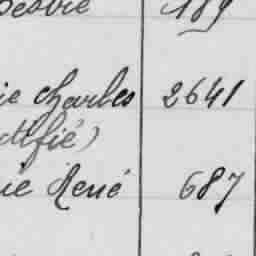 189
ie Charles 2641
ctifié)
ie René 687